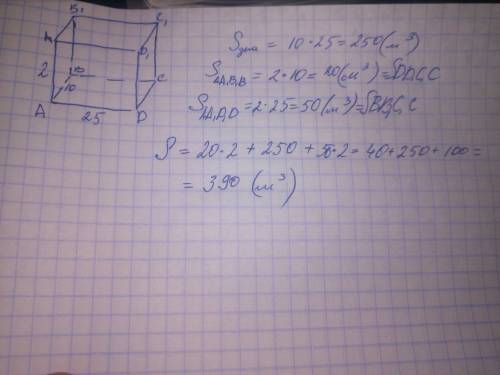 B₁ C₁
A₁ D₁
2 B 10 C
A 25 D
Sдна = 10 · 25 = 250 (м³)
SAA₁B₁B = 2 · 10 = 20 (м³) = SDD₁C₁C
SAA₁D₁D = 2 · 25 = 50 (м³) = SBB₁C₁C
S = 20 · 2 + 250 + 50 · 2 = 40 + 250 + 100 =
= 390 (м³)